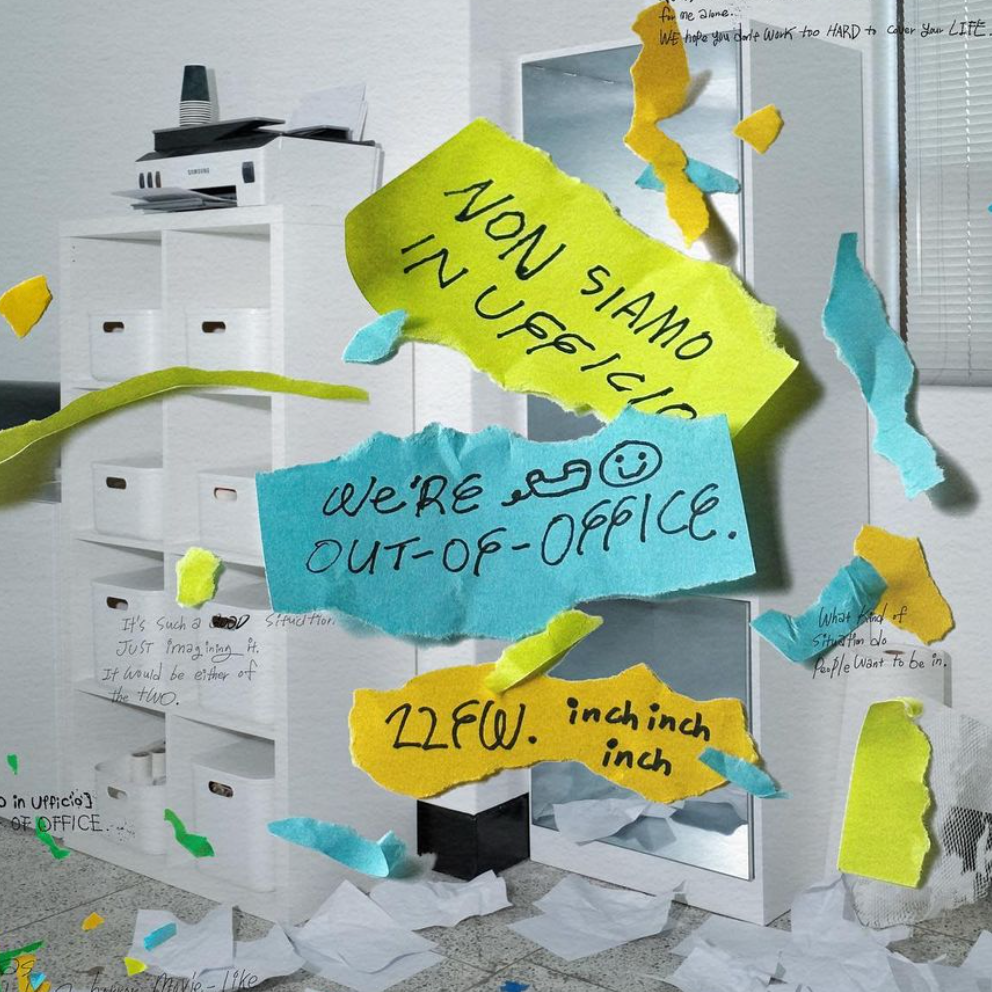 for me alone..
WE hope you don't work too HARD to cover your LIFE.
SAMSUNG
NON SIAMO
IN UFFICIO
WE'RE
OUT-OF-OFFICE.
It's such a situation.
JUST imagining it.
It would be either of
the two.
What kind of
situation do
people want to be in.
22FW. inch inch
inch
in Ufficio]
OF OFFICE.
Movie-like